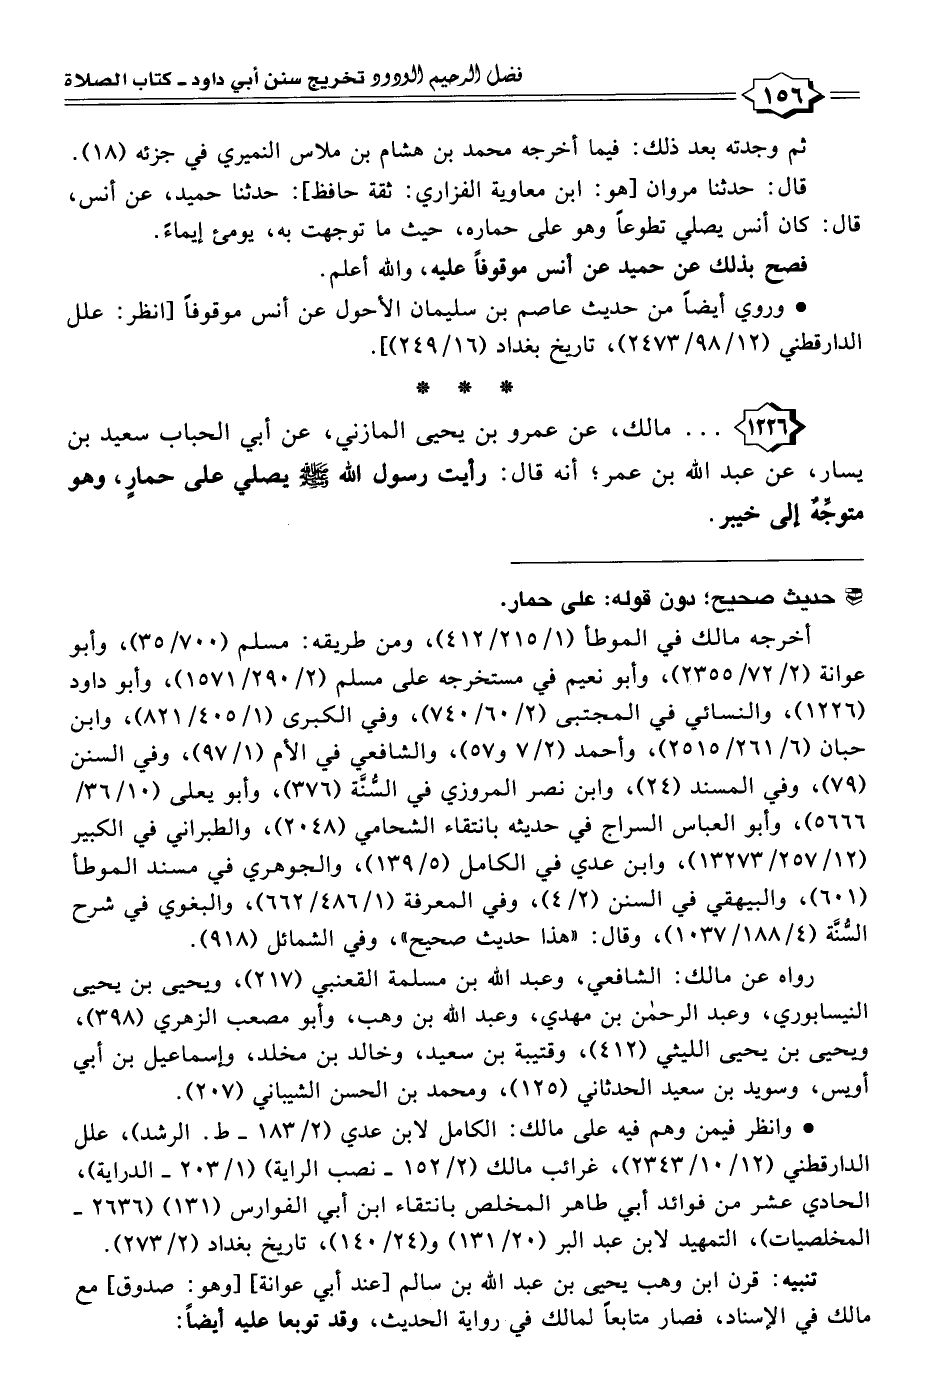 فضل الرحيم الودود تخريج سنن أبي داود ـ كتاب الصلاة
١٥٦
ثم وجدته بعد ذلك: فيما أخرجه محمد بن هشام بن ملاس النميري في جزئه (١٨).
قال: حدثنا مروان [هو: ابن معاوية الفزاري: ثقة حافظ]: حدثنا حميد، عن أنس،
قال: كان أنس يصلي تطوعاً وهو على حماره، حيث ما توجهت به، يومئ إيماءً.
فصح بذلك عن حميد عن أنس موقوفاً عليه، والله أعلم.
• وروي أيضاً من حديث عاصم بن سليمان الأحول عن أنس موقوفاً [انظر: علل
الدارقطني (١٢/ ٩٨/ ٢٤٧٣)، تاريخ بغداد (١٦/ ٢٤٩)].
* * *
١٢٢٦ ... مالك، عن عمرو بن يحيى المازني، عن أبي الحباب سعيد بن
يسار، عن عبد الله بن عمر؛ أنه قال: رأيت رسول الله ﷺ يصلي على حمارٍ، وهو
متوجِّهٌ إلى خيبر.
حديث صحيح؛ دون قوله: على حمار.
أخرجه مالك في الموطأ (١/ ٢١٥/ ٤١٢)، ومن طريقه: مسلم (٧٠٠/ ٣٥)، وأبو
عوانة (٢/ ٧٢/ ٢٣٥٥)، وأبو نعيم في مستخرجه على مسلم (٢/ ٢٩٠/ ١٥٧١)، وأبو داود
(١٢٢٦)، والنسائي في المجتبى (٢/ ٦٠/ ٧٤٠)، وفي الكبرى (١/ ٤٠٥/ ٨٢١)، وابن
حبان (٦/ ٢٦١/ ٢٥١٥)، وأحمد (٢/ ٧ و٥٧)، والشافعي في الأم (١/ ٩٧)، وفي السنن
(٧٩)، وفي المسند (٢٤)، وابن نصر المروزي في السُّنَّة (٣٧٦)، وأبو يعلى (١٠/ ٣٦/
٥٦٦٦)، وأبو العباس السراج في حديثه بانتقاء الشحامي (٢٠٤٨)، والطبراني في الكبير
(١٢/ ٢٥٧/ ١٣٢٧٣)، وابن عدي في الكامل (٥/ ١٣٩)، والجوهري في مسند الموطأ
(٦٠١)، والبيهقي في السنن (٢/ ٤)، وفي المعرفة (١/ ٤٨٦/ ٦٦٢)، والبغوي في شرح
السُّنَّة (٤/ ١٨٨/ ١٠٣٧)، وقال: «هذا حديث صحيح»، وفي الشمائل (٩١٨).
رواه عن مالك: الشافعي، وعبد الله بن مسلمة القعنبي (٢١٧)، ويحيى بن يحيى
النيسابوري، وعبد الرحمٰن بن مهدي، وعبد الله بن وهب، وأبو مصعب الزهري (٣٩٨)،
ويحيى بن يحيى الليثي (٤١٢)، وقتيبة بن سعيد، وخالد بن مخلد، وإسماعيل بن أبي
أويس، وسويد بن سعيد الحدثاني (١٢٥)، ومحمد بن الحسن الشيباني (٢٠٧).
• وانظر فيمن وهم فيه على مالك: الكامل لابن عدي (٢/ ١٨٣ ـ ط. الرشد)، علل
الدارقطني (١٢/ ١٠/ ٢٣٤٣)، غرائب مالك (٢/ ١٥٢ ـ نصب الراية) (١/ ٢٠٣ ـ الدراية)،
الحادي عشر من فوائد أبي طاهر المخلص بانتقاء ابن أبي الفوارس (١٣١) (٢٦٣٦ ـ
المخلصيات)، التمهيد لابن عبد البر (٢٠/ ١٣١) و(٢٤/ ١٤٠)، تاريخ بغداد (٢/ ٢٧٣).
تنبيه: قرن ابن وهب يحيى بن عبد الله بن سالم [عند أبي عوانة] [وهو: صدوق] مع
مالك في الإسناد، فصار متابعاً لمالك في رواية الحديث، وقد توبعا عليه أيضاً: